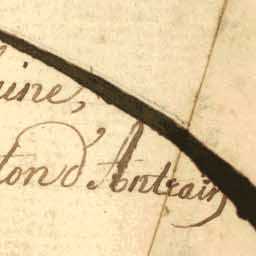 uine,
ton d'Antrain